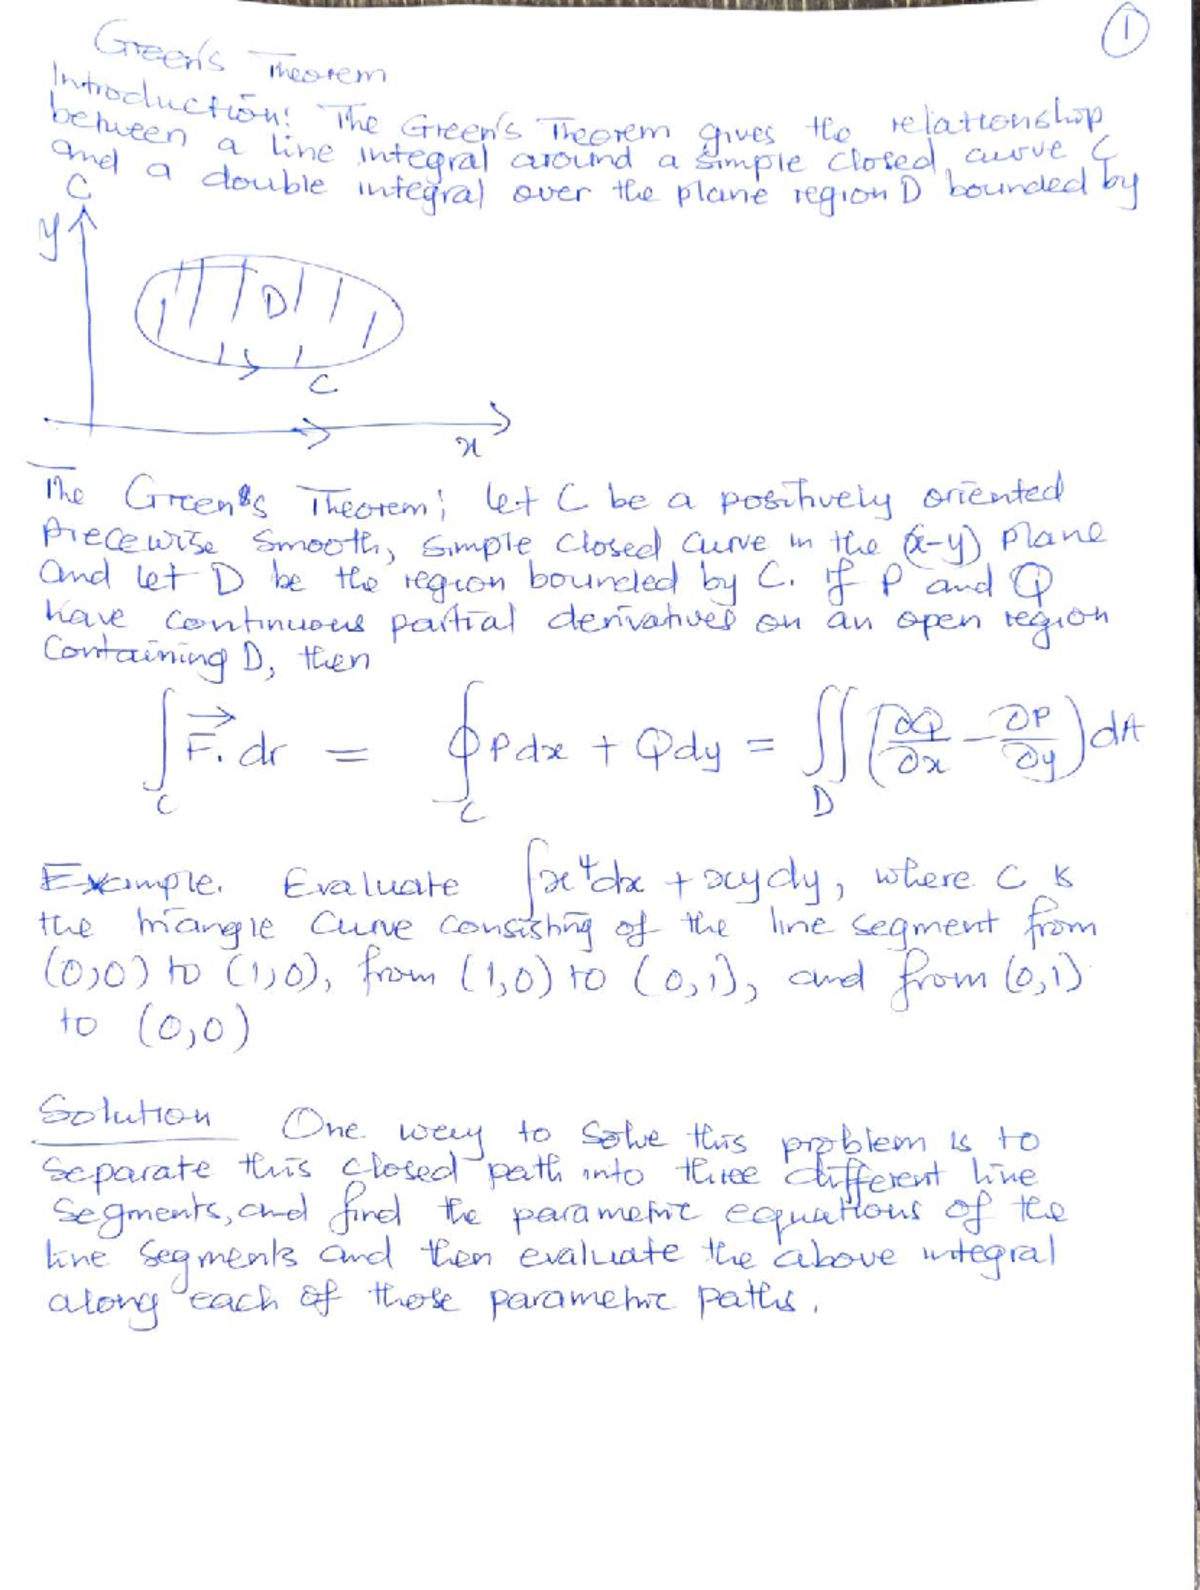 ①
Green's Theorem
Introduction: The Green's Theorem gives the relationship
between a line integral around a simple closed curve C
and a double integral over the plane region D bounded by
C
y
D
C
x
The Green's Theorem; Let C be a positively oriented
piecewise smooth, simple closed curve in the (x-y) plane
and let D be the region bounded by C. if P and Q
have continuous partial derivatives on an open region
Containing D, then
∫_C F⃗. dr = ∮_C Pdx + Qdy = ∬_D (∂Q/∂x - ∂P/∂y) dA
Example. Evaluate ∫x⁴dx + xydy, where C is
the triangle curve consisting of the line segment from
(0,0) to (1,0), from (1,0) to (0,1), and from (0,1)
to (0,0)
Solution One way to solve this problem is to
separate this closed path into three different line
segments, and find the parametric equations of the
line segments and then evaluate the above integral
along each of those parametric paths.